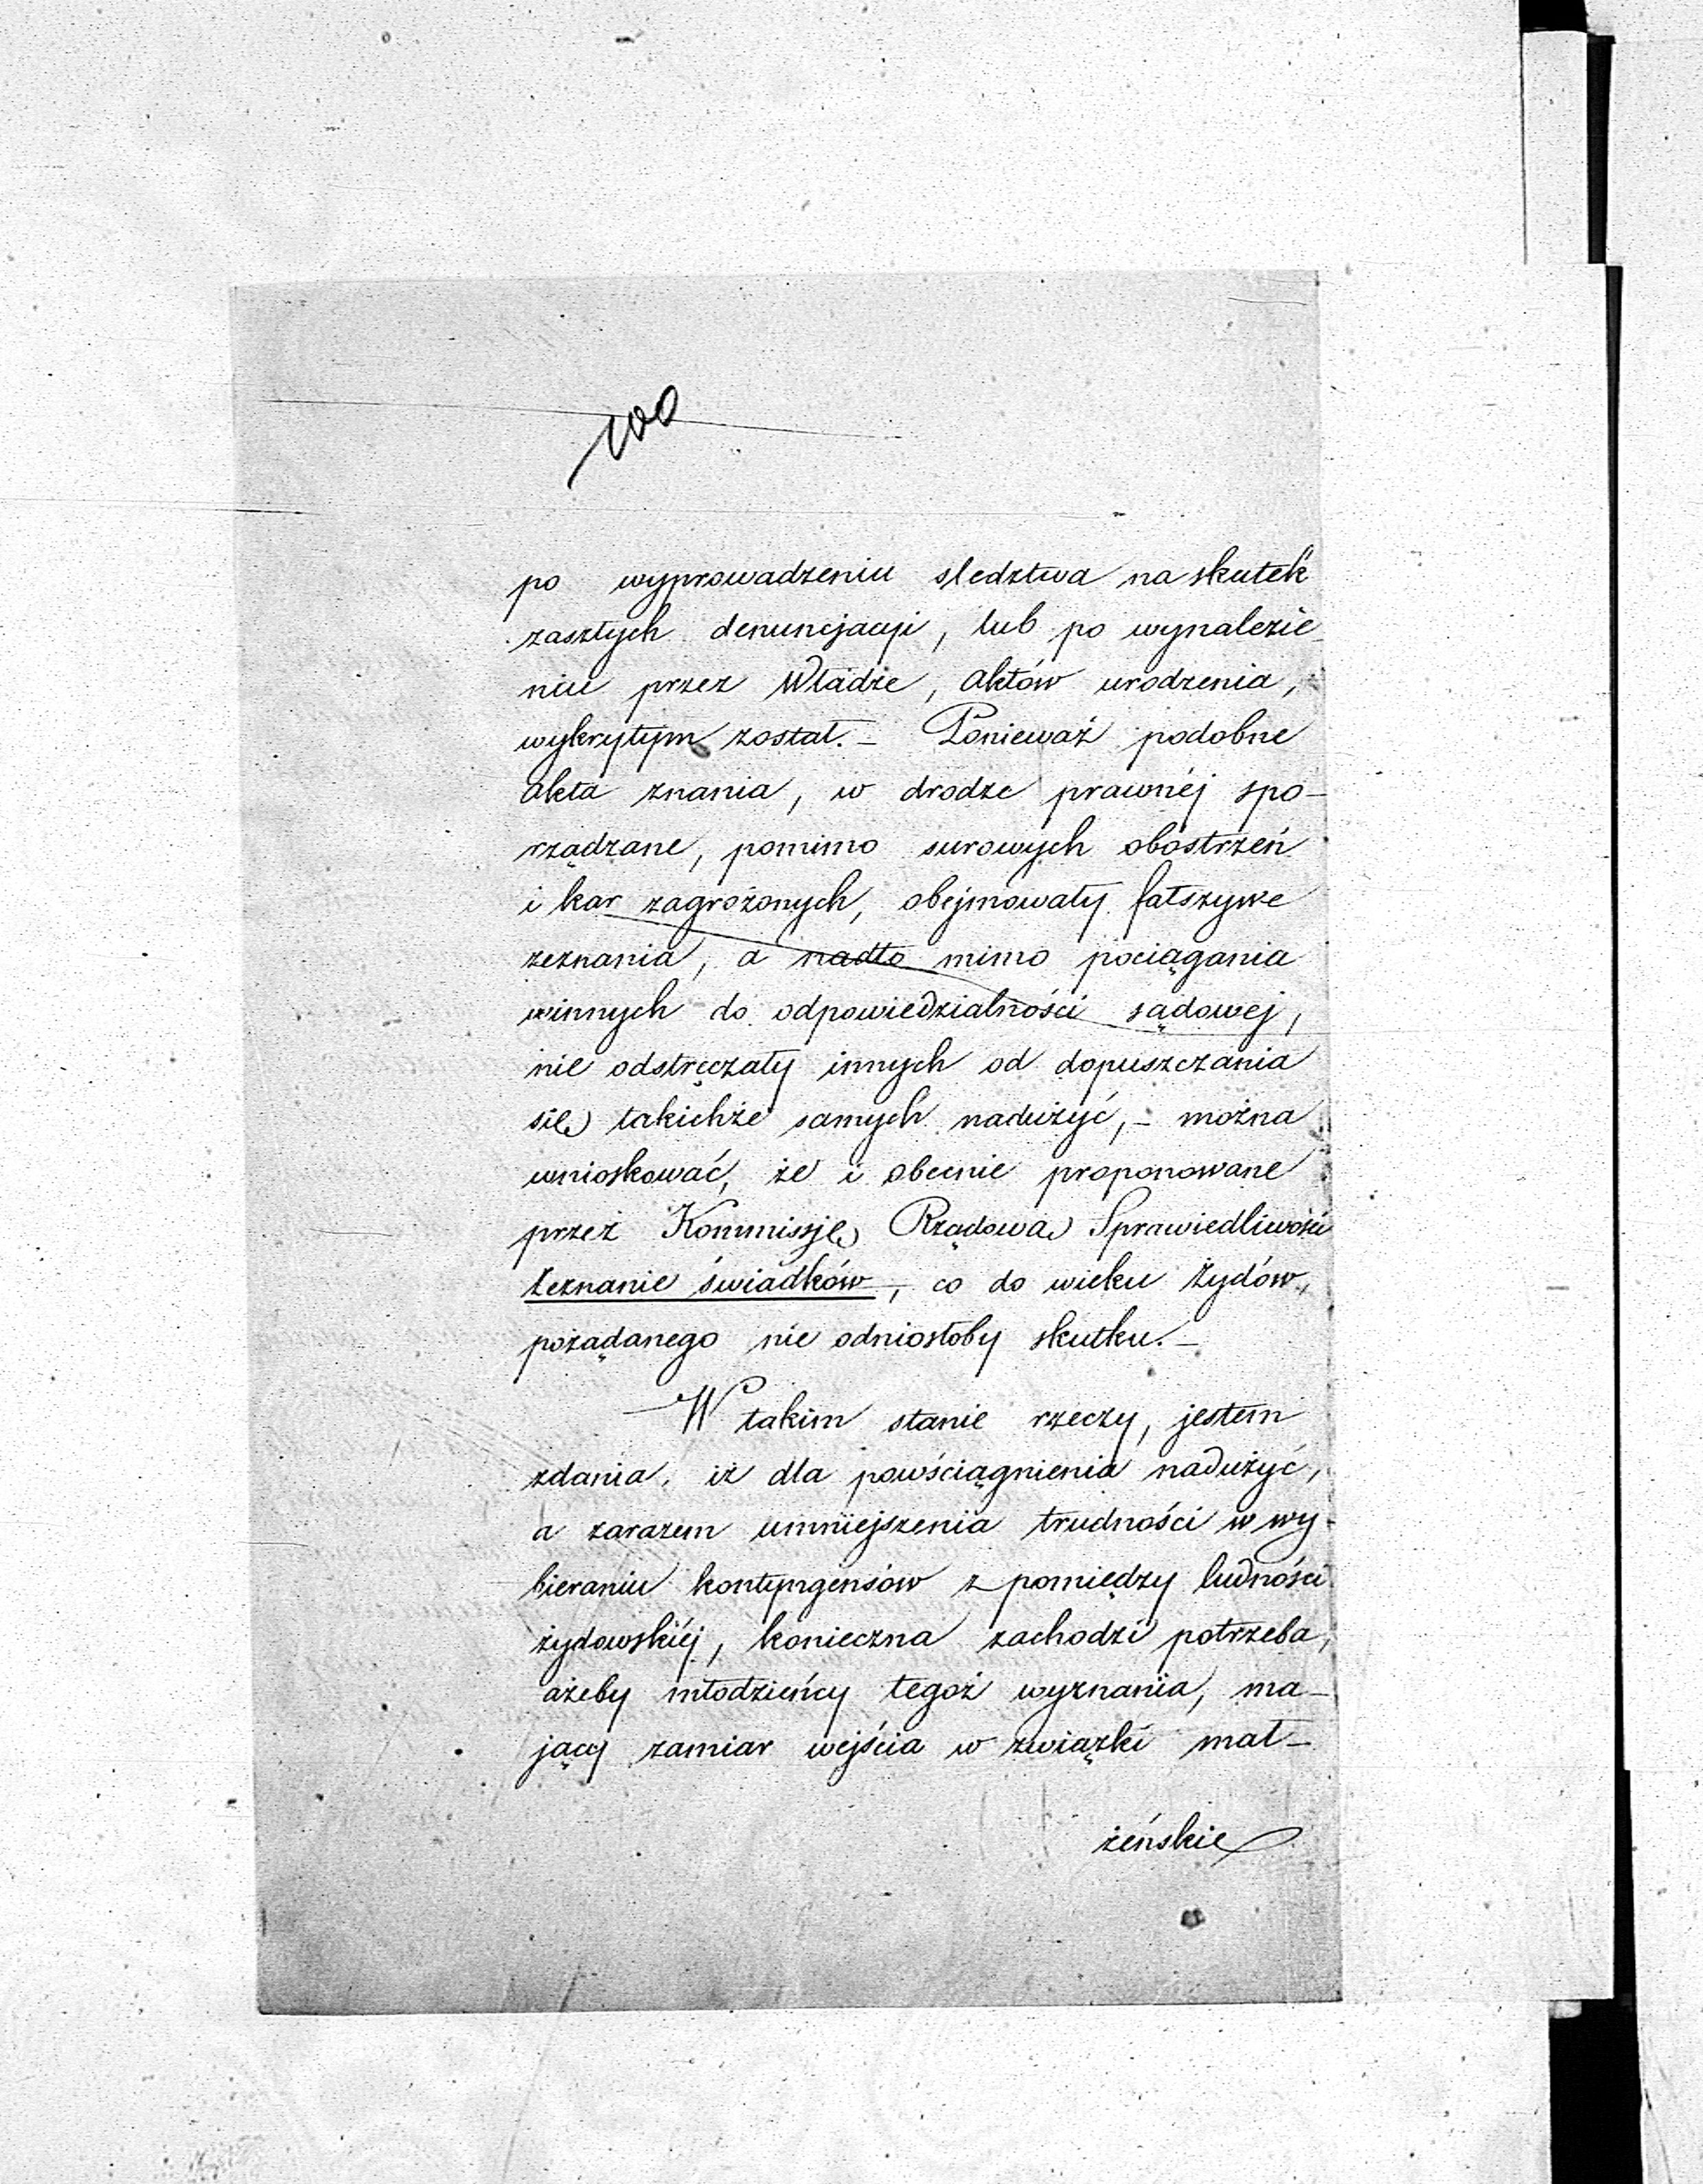 100
po wyprowadzeniu sledztwa na skutek
zaszłych denuncjacji, lub po wynalezie
niu przez Władze, aktów urodzenia,
wykrytym został. – Ponieważ podobne
akta znania, w drodze prawnéj spo–
rządzane, pomimo surowych obostrzeń
i kar zagrożonych, obejmowały fałszywe
zeznania, a nadto mimo pociągania
winnych do odpowiedzialności sądowej,
nie odstręczały innych od dopuszczania
się takichże samych nadużyć, – można
wnioskować, że i obecnie proponowane
przez Kommissję Rządową Sprawiedliwości
zeznanie świadków, co do wieku Żydów,
pożądanego nie odniosłoby skutku. –
W takim stanie rzeczy, jestem
zdania, iż dla powściągnienia nadużyć,
a zarazem umniejszenia trudności w wy–
bieraniu kontyngensów z pomiędzy ludności
żydowskiéj, konieczna zachodzi potrzeba,
ażeby młodzieńcy tegoż wyznania, ma–
jący zamiar wejścia w związki mał–
żeńskie